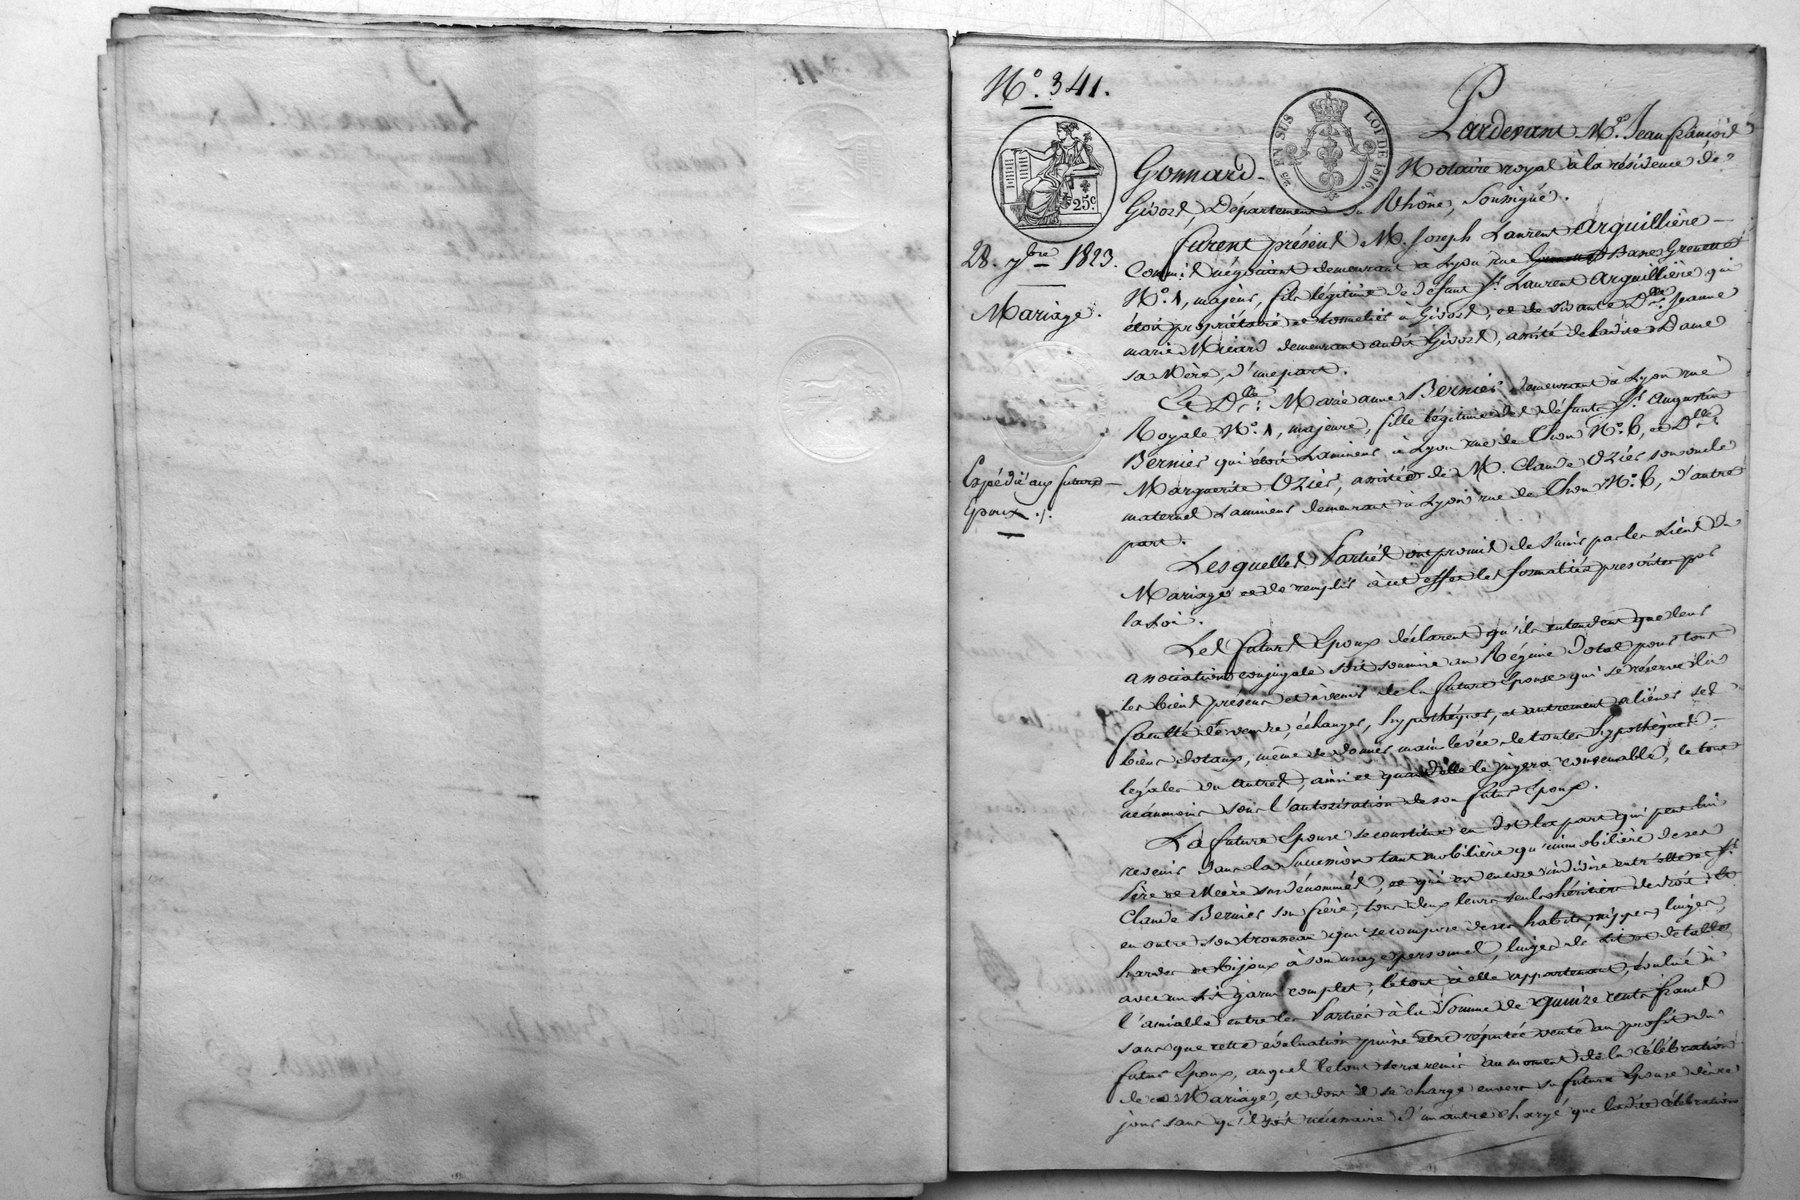 N.° 341.
25 EN SUS
LOI DE 1816.
25c.
28. 7bre 1823.
Mariage.
Expédié aux futurs
Epoux ./.
Pardevant M.e Jean françois
Gonnard Notaire royal à la résidence de
Givors, Département du Rhône, Soussigné.
furent présens M. Joseph Laurent Arguillière
Comm.s négociant demeurant à Lyon rue Basse Grenette
N.° 1, majeur, fils légitime de défunt S.r Laurent Arguillière qui
étoit propriétaire et tonnelier à Givors, et de vivante D.lle Jeanne
marie demeurant audit Givors, assisté de ladite Dame
sa Mère, d'une part.
Et D.lle Marie anne Bernier demeurant à Lyon rue
Royale N.° 1, majeure, fille légitime des défunts S.r Augustin
Bernier qui étoit à Lyon rue de Thou N.° 6, et D.lle
Marguerite Ozier, assistée de M. Claude Ozier son oncle
maternel demeurant à Lyon rue de Thou N.° 6, d'autre
part.
Lesquelles Parties ont promis de s'unir par les Liens du
Mariage et de remplir à cet effet les formalités prescrites par
la Loi.
Les futurs Epoux déclarent qu'ils entendent que leur
association conjugale soit soumise au Régime Dotal pour tous
les biens présens et à venir de la future Epouse qui se réserve la
faculté de vendre, échanger, hypothéquer, et autrement aliéner ses
biens dotaux, même de donner main levée de toutes hypothèques
légales ou autres, ainsi et quand elle le jugera convenable, le tout
néanmoins sous l'autorisation de son futur Epoux.
La future Epouse se constitue en Dot la part qui peut lui
revenir dans la Succession tant mobilière qu'immobilière de ses
Père et Mère susdénommés, et qui est encore indivise entre elle et S.r
Claude Bernier son frère, tous deux leurs seuls héritiers de droit; et
en outre son trousseau qui se compose de ses habits, nippes, linges,
hardes et bijoux à son usage personnel, linges de lit et de tables
avec un lit garni complet, le tout à elle appartenant, évalué à
l'amiable entre les Parties à la Somme de quinze cents francs
sans que cette évaluation puisse être réputée vente au profit du
futur Epoux, auquel le tout sera remis au moment de la célébration
de ce Mariage, et dont il se charge envers sa future Epouse dès ce
jour sans qu'il soit nécessaire d'un autre chargé que ladite célébration